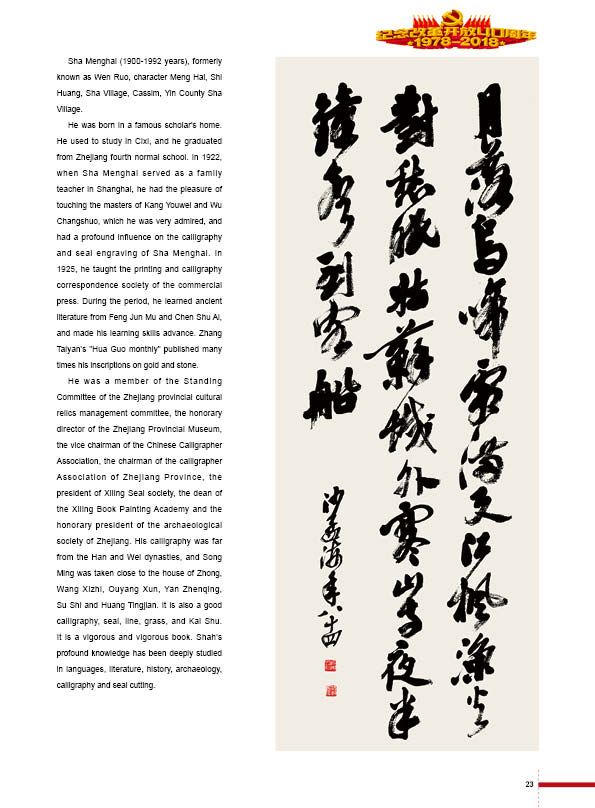 纪念改革开放40周年
★1978-2018★
Sha Menghai (1900-1992 years), formerly
known as Wen Ruo, character Meng Hai, Shi
Huang, Sha Village, Cassim, Yin County Sha
Village.
He was born in a famous scholar's home.
He used to study in Cixi, and he graduated
from Zhejiang fourth normal school. In 1922,
when Sha Menghai served as a family
teacher in Shanghai, he had the pleasure of
touching the masters of Kang Youwei and Wu
Changshuo, which he was very admired, and
had a profound influence on the calligraphy
and seal engraving of Sha Menghai. In
1925, he taught the printing and calligraphy
correspondence society of the commercial
press. During the period, he learned ancient
literature from Feng Jun Mu and Chen Shu Ai,
and made his learning skills advance. Zhang
Taiyan's "Hua Guo monthly" published many
times his inscriptions on gold and stone.
He was a member of the Standing
Committee of the Zhejiang provincial cultural
relics management committee, the honorary
director of the Zhejiang Provincial Museum,
the vice chairman of the Chinese Calligrapher
Association, the chairman of the calligrapher
Association of Zhejiang Province, the
president of Xiling Seal society, the dean of
the Xiling Book Painting Academy and the
honorary president of the archaeological
society of Zhejiang. His calligraphy was far
from the Han and Wei dynasties, and Song
Ming was taken close to the house of Zhong,
Wang Xizhi, Ouyang Xun, Yan Zhenqing,
Su Shi and Huang Tingjian. It is also a good
calligraphy, seal, line, grass, and Kai Shu.
It is a vigorous and vigorous book. Shah's
profound knowledge has been deeply studied
in languages, literature, history, archaeology,
calligraphy and seal cutting.
月落烏啼霜滿天江楓漁火
對愁眠姑蘇城外寒山寺夜半
鐘聲到客船
沙孟海年八十四
23